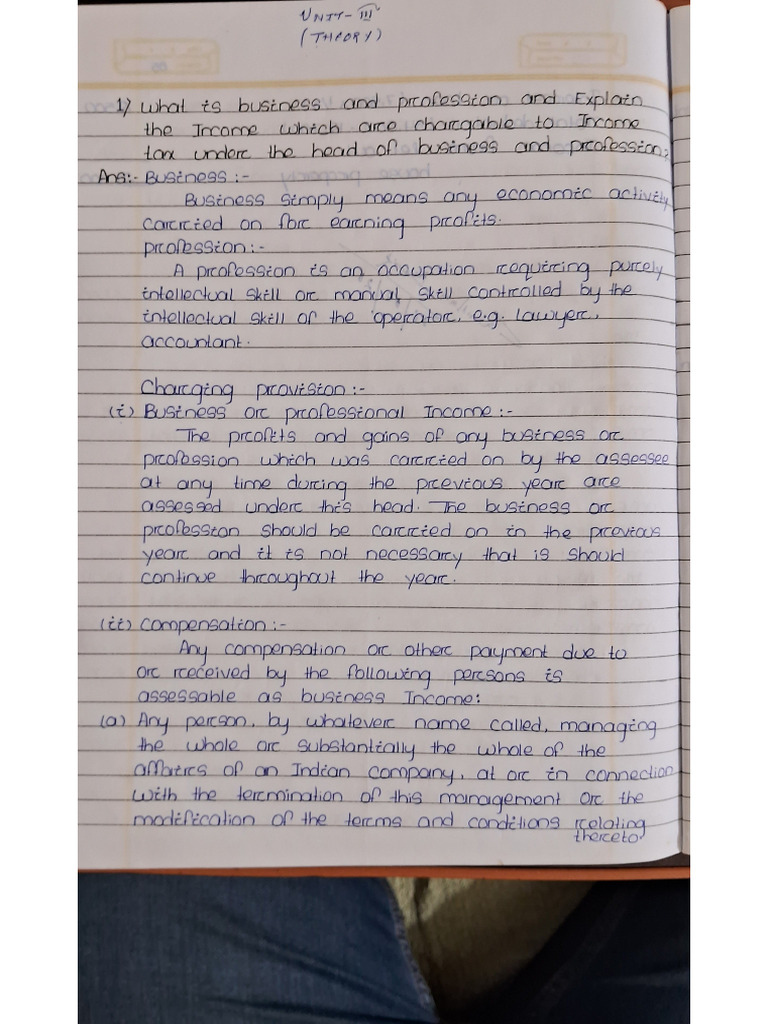 UNIT-III
(THEORY)
1) What is business and profession and Explain
the Income which are chargable to Income
tax under the head of business and profession?
Ans:- Business :-
Business simply means any economic activity
carried on for earning profits.
profession:-
A profession is an occupation requiring purely
intellectual skill or manual skill controlled by the
intellectual skill of the operator. e.g. lawyer,
accountant.
Charging provision:-
(i) Business or professional Income:-
The profits and gains of any business or
profession which was carried on by the assessee
at any time during the previous year are
assessed under this head. The business or
profession should be carried on in the previous
year and it is not necessary that is should
continue throughout the year.
(ii) compensation:-
Any compensation or other payment due to
or received by the following persons is
assessable as business Income:
(a) Any person, by whatever name called, managing
the whole or substantially the whole of the
affairs of an Indian company, at or in connection
with the termination of this management or the
modification of the terms and conditions relating
thereto